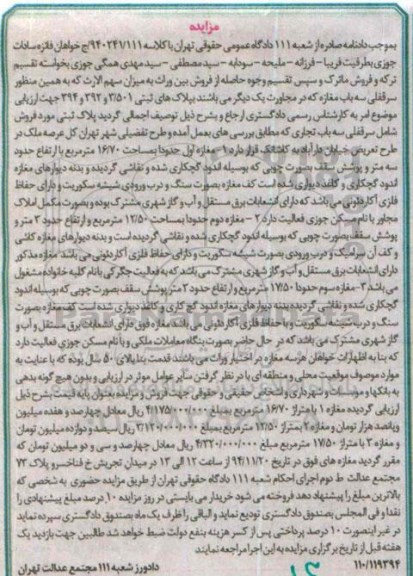 مزایده
بموجب دادنامه صادره از شعبه ۱۱۱ دادگاه عمومی حقوقی تهران با کلاسه ۹۴۰۲۴۱/۱۱۱/ج خواهان فائزه سادات
جوزی بطرفیت فریبا - فرزانه - ملیحه - سودابه - سید مصطفی - سید مهدی همگی جوزی بخواسته تقسیم
ترکه و فروش ماترک و سپس تقسیم وجوه حاصله از فروش بین وراث به میزان سهم الارث که به همین منظور
سرقفلی سه باب مغازه که در مجاورت یک دیگر می باشند بپلاک های ثبتی ۳/۵۰۱ و ۳۹۲ و ۳۹۴ جهت ارزیابی
موضوع امر به کارشناس رسمی دادگستری ارجاع و بشرح ذیل توصیف اجمالی گردید پلاک ثبتی مورد فروش
شامل سرقفلی سه باب تجاری که مطابق بررسی های بعمل آمده و طرح تفضیلی شهر تهران کل عرصه ملک در
طرح تعریض خیابان دارآباد به کاشانک قرار دارد ۱- مغازه اول حدودا بمساحت ۱۶/۷۰ مترمربع با ارتفاع حدود
سه متر و پوشش سقف بصورت چوبی که بوسیله اندود گچکاری شده و نقاشی گردیده و بدنه دیوارهای مغازه
اندود گچکاری و کاغذ دیواری شده است کف مغازه بصورت سنگ و درب ورودی شیشه سکوریت و دارای حفاظ
فلزی آکاردئونی می باشد که دارای انشعابات برق مستقل و آب و گاز شهری مشترک بوده و بصورت مکمل املاک
مجاور با نام مسکن جوزی فعالیت دارد ۲- مغازه دوم حدودا بمساحت ۱۲/۵۰ مترمربع و ارتفاع حدود ۳ متر و
پوشش سقف بصورت چوبی که بوسیله اندود گچکاری شده و نقاشی گردیده است و بدنه دیوارهای مغازه کاشی
و کف آن سرامیک و درب ورودی بصورت شیشه سکوریت و دارای حفاظ فلزی آکاردئونی می باشد مغازه مذکور
دارای انشعابات برق مستقل و آب و گاز شهری مشترک می باشد که به فعالیت جگرکی با نام کلبه خانواده مشغول
می باشد ۳- مغازه سوم حدودا ۱۷/۵۰ مترمربع و ارتفاع حدود ۳ متر پوشش سقف بصورت چوبی که بوسیله اندود
گچکاری شده و نقاشی گردیده بدنه دیوار های مغازه اندود گچ کاری و کاغذ دیواری شده است کف مغازه بصورت
سنگ و درب شیشه سکوریت و با حفاظ فلزی آکاردئونی می باشد مغازه فوق دارای انشعابات برق مستقل و آب و
گاز شهری مشترک می باشد که در حال حاضر بصورت بنگاه معاملات ملکی و با نام مسکن جوزی فعالیت دارد
که بنا به اظهارات خواهان هرسه مغازه در اختیار وراث می باشند قدمت بنا بالای ۵۰ سال بوده که با عنایت به
موارد موصوف موقعیت محلی و منطقه ای با در نظر گرفتن سایر عوامل موثر در ارزیابی و بدون هیچ گونه بدهی
به بانکها و موسسات و شهرداری و اشخاص حقیقی و حقوقی جهت فروش و مزایده بعنوان پایه قیمت بشرح ذیل
ارزیابی گردیده مغازه ۱ با متراژ ۱۶/۷۰ مترمربع بمبلغ ۴/۱۷۵/۰۰۰/۰۰۰ ریال معادل چهارصد و هفده میلیون
وپانصد هزار تومان و مغازه ۲ بمتراژ ۱۲/۵۰ مترمربع بمبلغ ۳/۱۲۰/۰۰۰/۰۰۰ ریال سیصد و دوازده میلیون تومان
و مغازه ۳ با متراژ ۱۷/۵۰ مترمربع مبلغ ۴/۳۲۰/۰۰۰/۰۰۰ ریال معادل چهارصد و سی و دو میلیون تومان که
مقرر گردید مغازه های فوق در تاریخ ۹۴/۱۱/۲۰ از ساعت ۱۲ الی ۱۳ در میدان تجریش خ فناخسرو پلاک ۷۲
مجتمع عدالت ط دوم اجرای احکام شعبه ۱۱۱ دادگاه حقوقی تهران از طریق مزایده حضوری به شخصی که
بالاترین مبلغ را پیشنهاد دهد فروخته می شود خریدار می بایستی در روز مزایده ۱۰ درصد مبلغ پیشنهادی را
نقدا و فی المجلس بصندوق دادگستری تودیع نماید و الباقی را ظرف یک ماه بصندوق دادگستری سپرده نماید
در غیر اینصورت ۱۰ درصد پرداختی پس از کسر هزینه بنفع دولت ضبط خواهد شد طالبین جهت بازدید یک
هفته قبل از تاریخ برگزاری مزایده به این اجرا مراجعه نمایند
۱۱۰/۱۱۹۳۹۴ دادورز شعبه ۱۱۱ مجتمع عدالت تهران